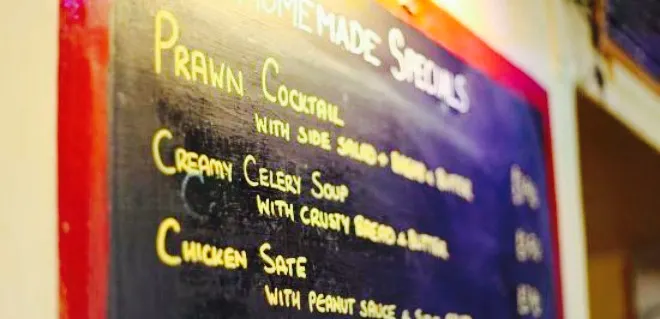 HOMEMADE SPECIALS
PRAWN COCKTAIL
WITH SIDE SALAD + BREAD & BUTTER
CREAMY CELERY SOUP
WITH CRUSTY BREAD & BUTTER
CHICKEN SATE
WITH PEANUT SAUCE &